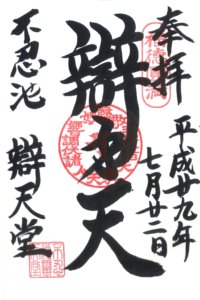 奉拝
平成廿九年
七月廿二日
辯才天
不忍池
辯天堂